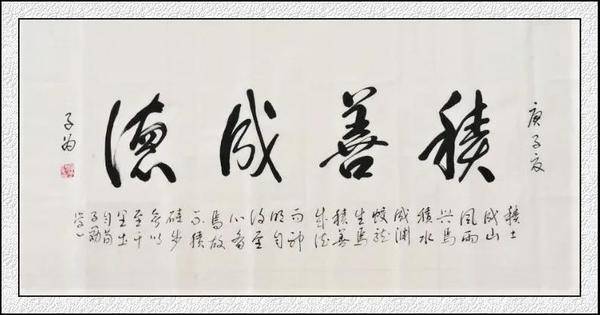 庚子夏
積善成德
積土
成山
風雨
兴焉
積水
成渊
蛟龍
生焉
積善
成德
而神
明自
得
心备
焉故
不積
跬步
無以
至千
里
荀
子勸
学
子为